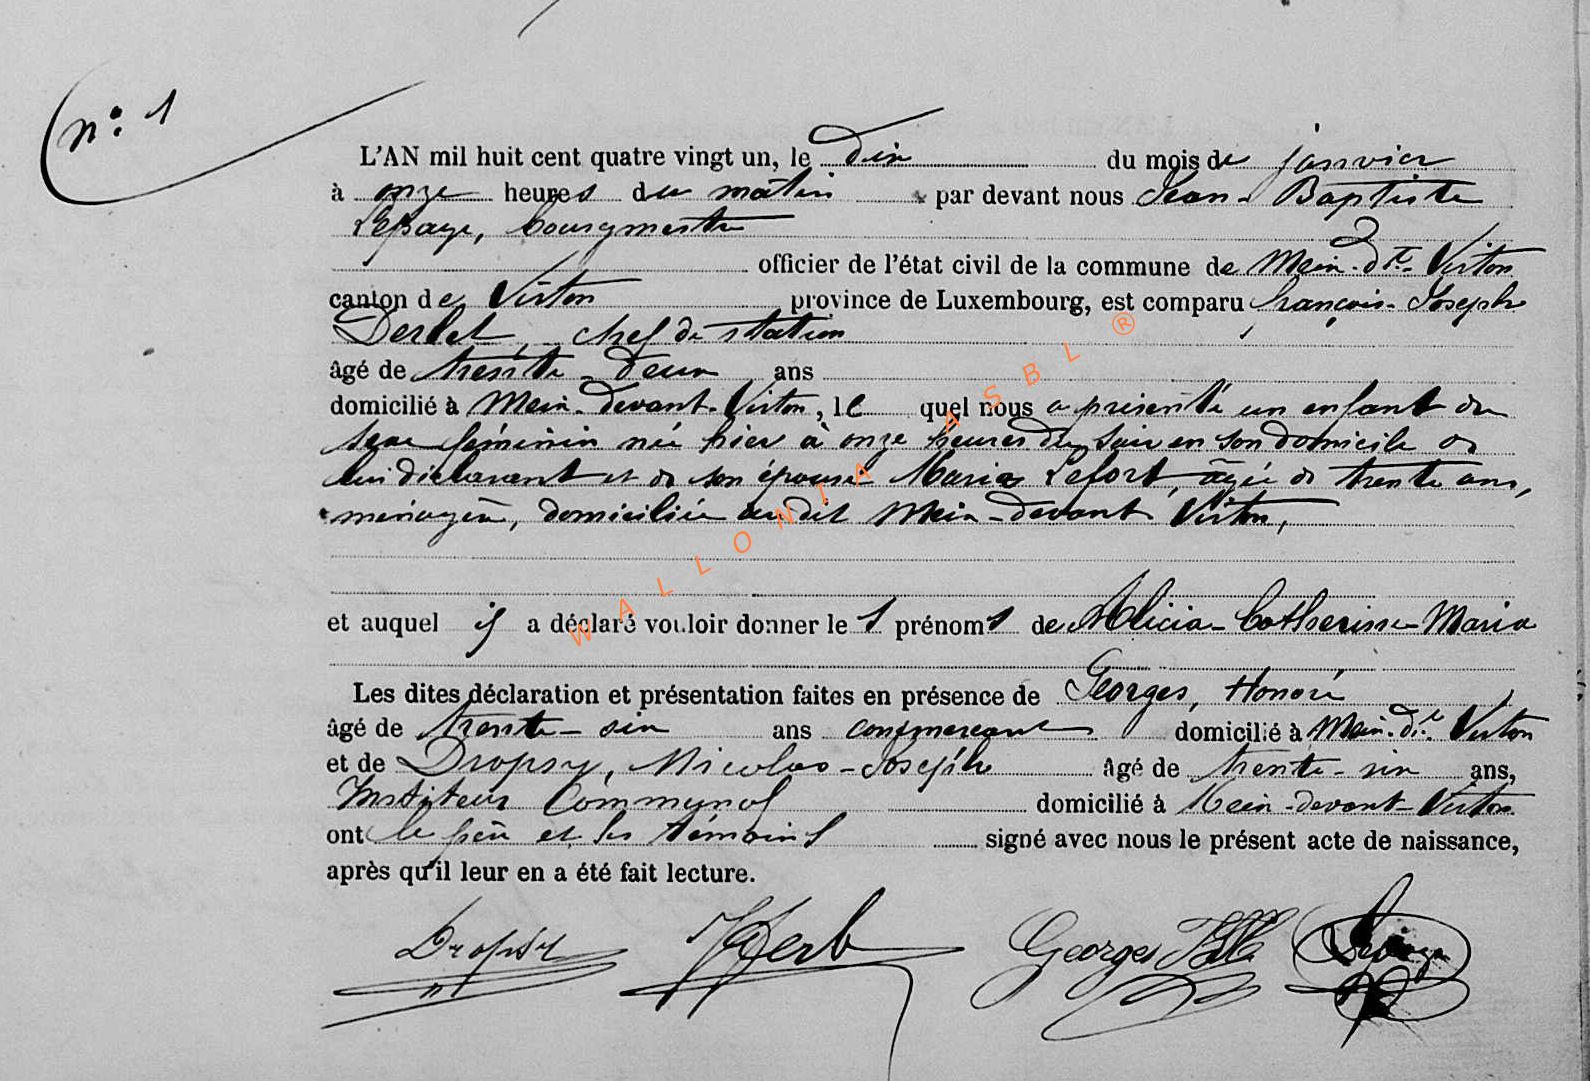 n° 1
L'AN mil huit cent quatre vingt un, le dix du mois de janvier
à onze heures du matin par devant nous Jean-Baptiste
Lepage, bourgmestre
officier de l'état civil de la commune de Meix-dt-Virton
canton de Virton province de Luxembourg, est comparu françois-Joseph
chef de station
âgé de trente-deux ans
domicilié à Meix-devant-Virton, lequel nous a présenté un enfant du
sexe féminin né hier à onze heures du soir en son domicile de
lui déclarant et de son épouse Maria Lefort, âgée de trente ans,
ménagère, domiciliée audit Meix-devant Virton,
et auquel il a déclaré vouloir donner les prénoms de Alicia-Catherine-Maria
Les dites déclaration et présentation faites en présence de Georges, Honoré
âgé de trente-six ans commerçant domicilié à Meix-dt-Virton
et de Dropsy, Nicolas-Joseph âgé de trente-six ans,
Instituteur Communal domicilié à Meix-devant-Virton
ont le père et les témoins signé avec nous le présent acte de naissance,
après qu'il leur en a été fait lecture.
Dropsy Georges Lepage
WALLONIA ASBL ®